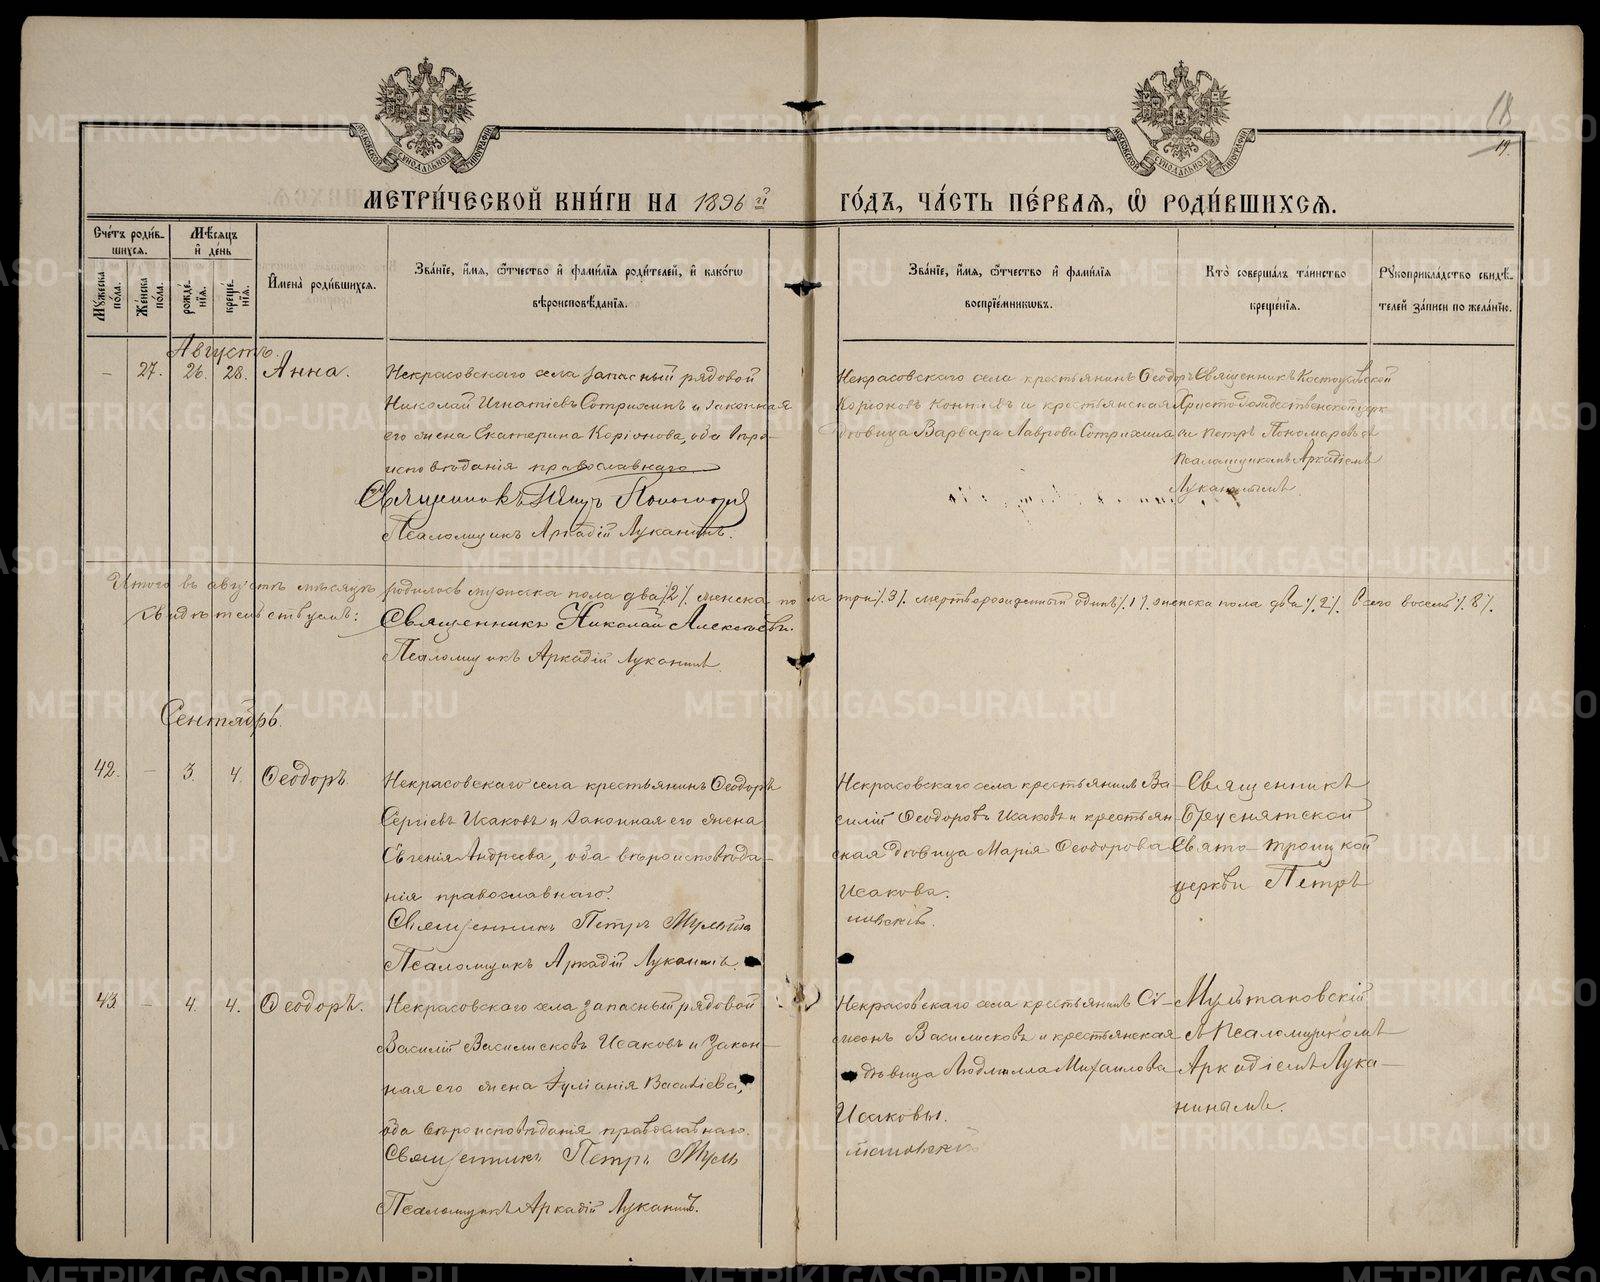 18
19.
МЕТРИ́ЧЕСКОЙ КНИ́ГИ НА 1896 й ГО́ДЪ, ЧА́СТЬ ПЕ́РВАЯ, Ѽ РОДИ́ВШИХСЯ.
Сче́тъ роди́вшихся.
Му́жеска по́ла.
Же́нска по́ла.
Мѣ́сяцъ и҆ де́нь
рожде́нїя.
креще́нїя.
И҆мена̀ роди́вшихся.
Зва́нїе, и҆́мя, ѻ҆́тчество и҆ фамѝлїя роди́телей, и҆ како́гѡ
вѣроисповѣ́данїя.
Зва́нїе, и҆́мя, ѻ҆́тчество и҆ фамѝлїя
воспрїе́мниковъ.
Кто̀ соверша́лъ та́инство
креще́нїя.
Рꙋкоприкла́дство свидѣ́телей за́писи по жела́нїю.
Августъ.
– 27. 26. 28. Анна.
Некрасовскаго села запасный рядовой
Николай Игнатіевъ Сотрихинъ и законная
его жена Екатерина Коріонова, оба вѣро-
исповѣданія православнаго
Священникъ Петръ
Псаломщикъ Аркадій Луканинъ.
Некрасовскаго села крестьянинъ Ѳеодоръ
Коріоновъ и крестьянская
дѣвица Варвара Лаврова Сотрихина
Священникъ
Христорождественской церк
ви Петръ Пономаревъ съ
псаломщикомъ Аркадіемъ
Луканинымъ.
Итого въ августѣ мѣсяцѣ родилось мужска пола два /2/. женска пола три /3/. мертворожденный одинъ /1/. женска пола два /2/. Всего восемь /8/.
Свидѣтельствуемъ: Священникъ Николай Алексѣевъ.
Псаломщикъ Аркадій Луканинъ
Сентябрь.
42. – 3. 4. Ѳеодоръ
Некрасовскаго села крестьянинъ Ѳеодоръ
Сергіевъ Исаковъ и законная его жена
Евгенія Андреева, оба вѣроисповѣда-
нія православнаго.
Священникъ Петръ Мульта
Псаломщикъ Аркадій Луканинъ.
Некрасовскаго села крестьянинъ Ва-
силій Ѳеодоровъ Исаковъ и крестьян-
ская дѣвица Марія Ѳеодорова
Исакова.
новскій.
Священникъ
Бруснятской
Свято-троицкой
церкви Петръ
43 – 4. 4. Ѳеодоръ.
Некрасовскаго села запасный рядовой
Василій Василисковъ Исаковъ и закон-
ная его жена Іуліанія Васильева,
оба вѣроисповѣданія православнаго.
Священникъ Петръ Муль
Псаломщикъ Аркадій Луканинъ.
Некрасовскаго села крестьянинъ Си-
меонъ Василисковъ и крестьянская
дѣвица Людмилла Михаилова
Исаковы.
тановскій
Мультановскій
съ Псаломщикомъ
Аркадіемъ Лука-
нинымъ.
METRIKI.GASO-URAL.RU